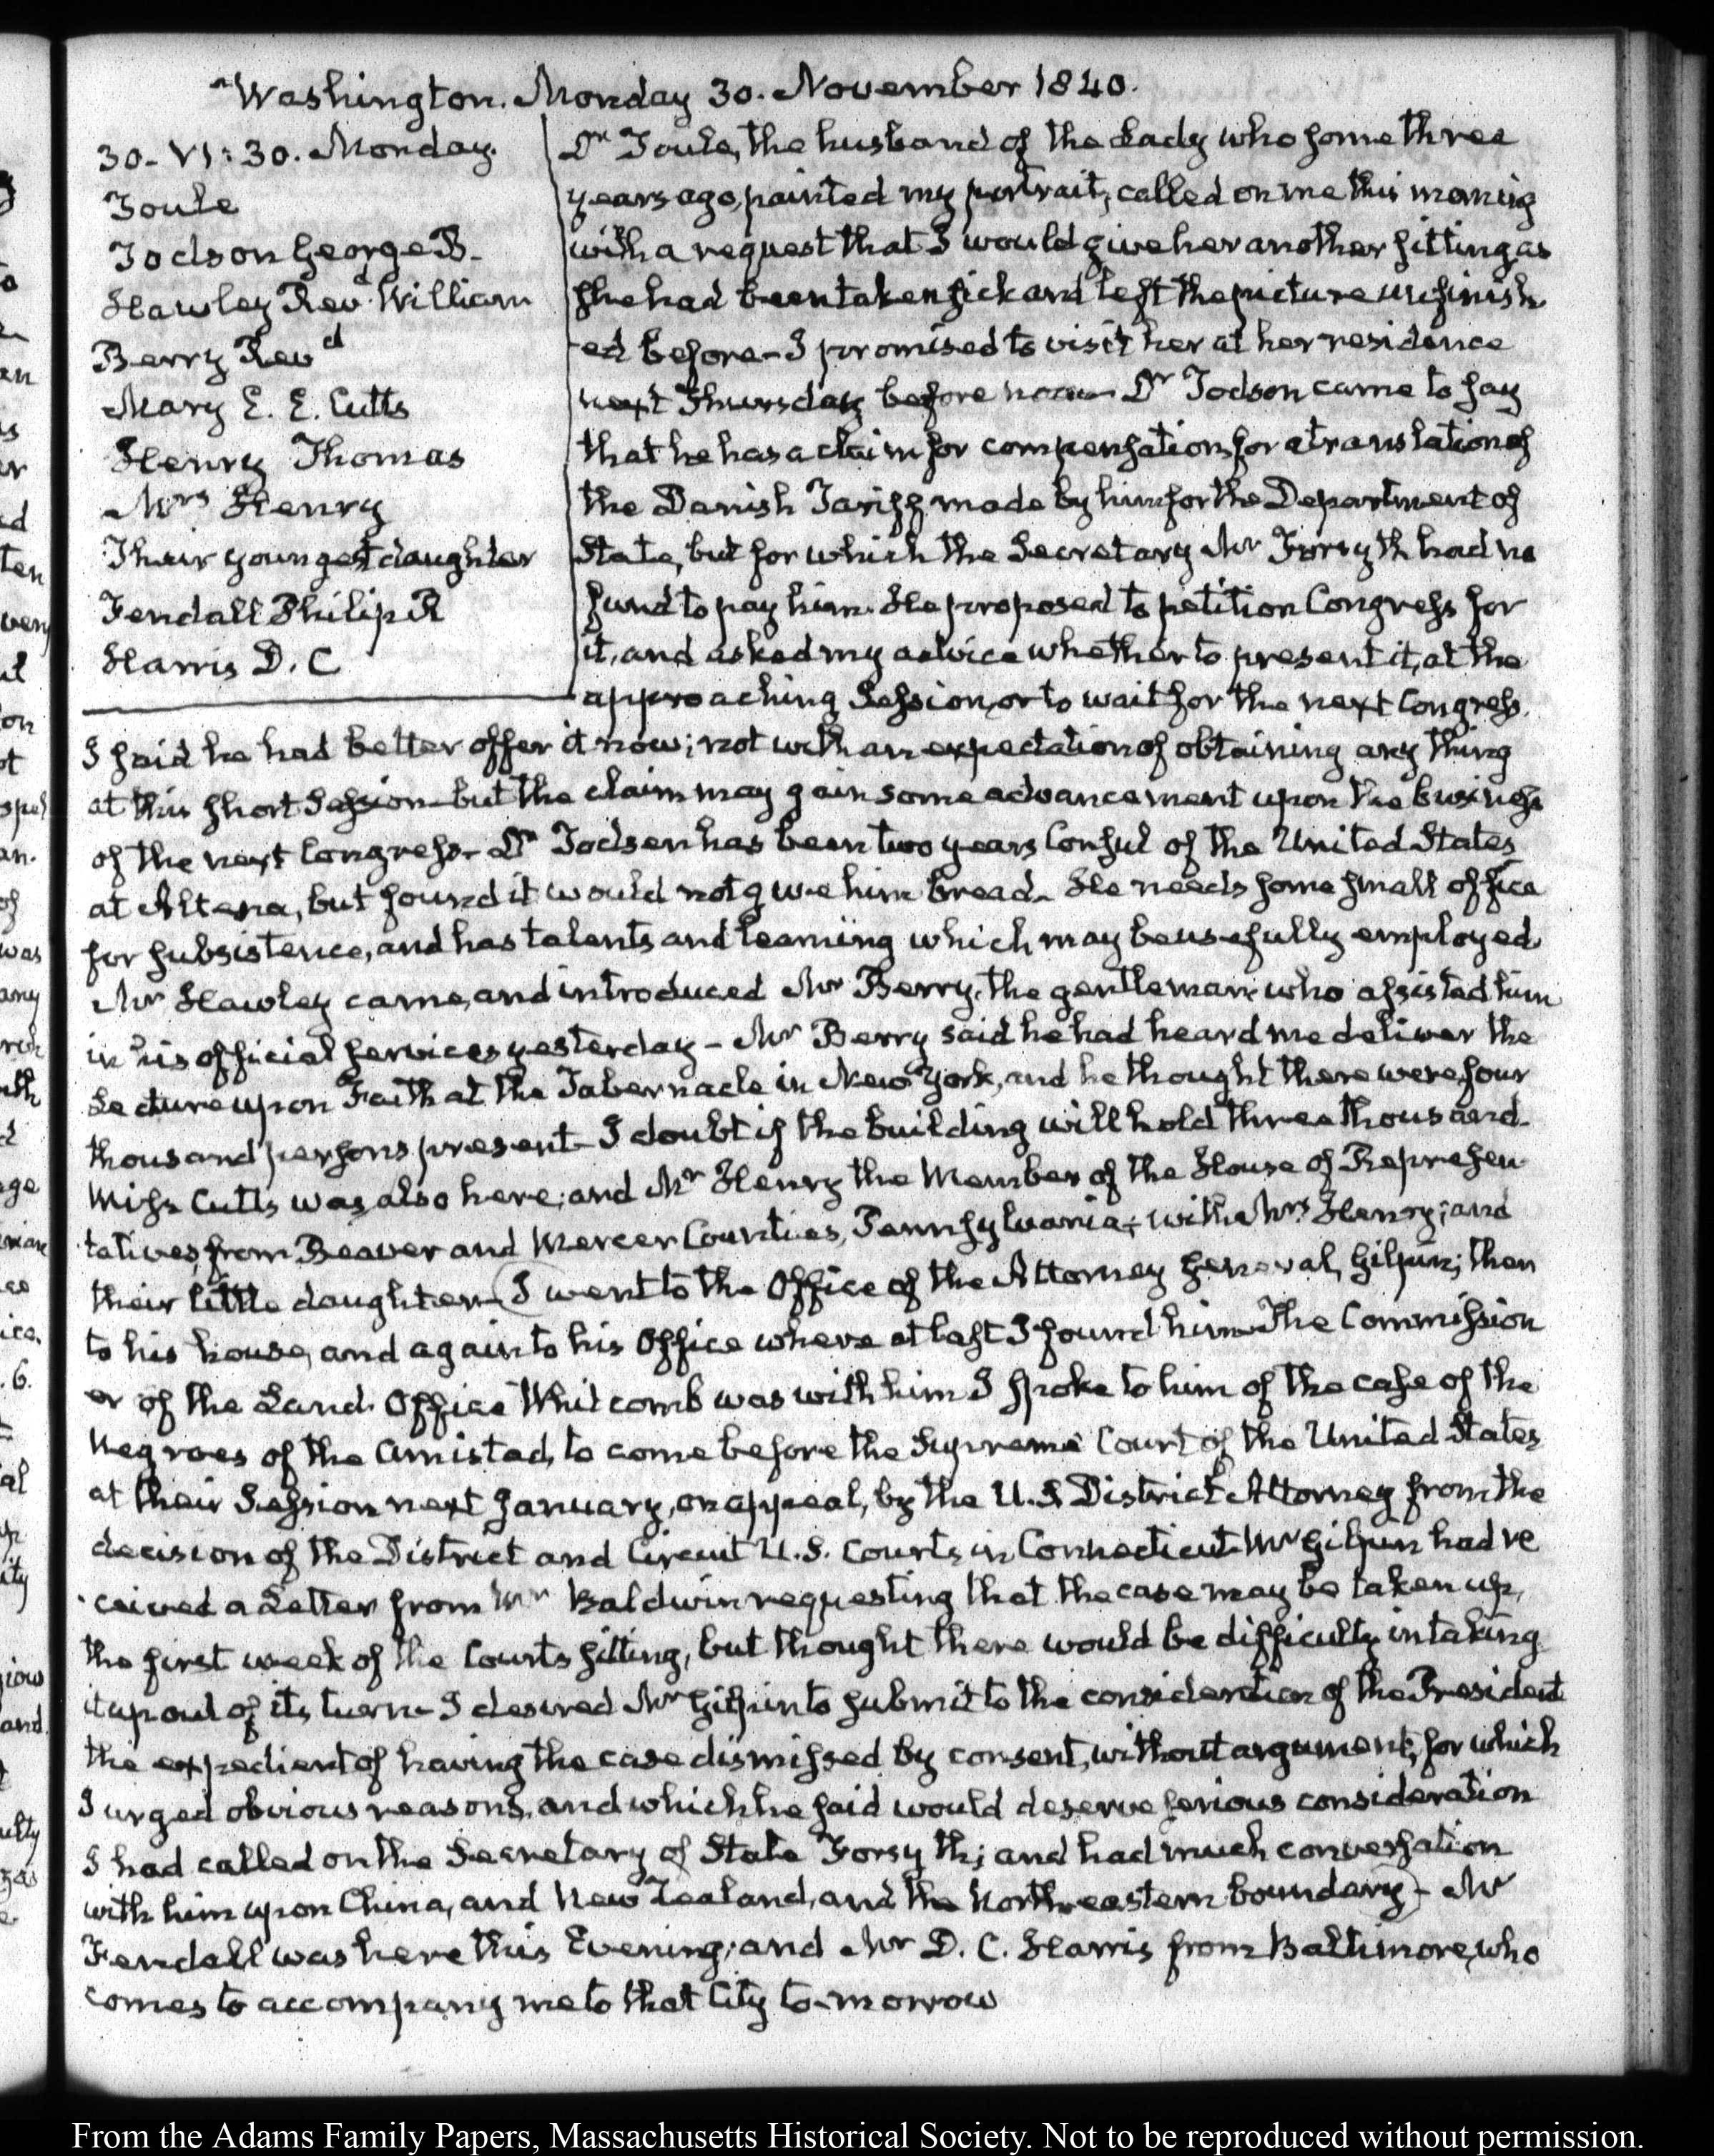 Washington. Monday 30. November 1840.
30. VI:30. Monday.
Toule
Todson George B.
Hawley Revd. William
Berry Revd
Mary E. E. Cutts
Henry Thomas
Mrs Henry
Their youngest daughter
Fendall Philip R
Harris D. C
Dr Toule, the husband of the Lady who some three
years ago, painted my portrait, called on me this morning
with a request that I would give her another sitting as
she had been taken sick and left the picture unfinish
-ed before— I promised to visit her at her residence
next Thursday before noon— Dr Todson came to say
that he has a claim for compensation, for a translation of
the Danish Tariff, made by him for the Department of
State, but for which the Secretary Mr Forsyth had no
fund to pay him. He proposed to petition Congress for
it, and asked my advice whether to present it, at the
approaching Session, or to wait for the next Congress.
I said he had better offer it now; not with an expectation of obtaining any thing
at this short Session— but the claim may gain some advancement upon the business
of the next Congress— Dr Todsen has been two years Consul of the United States
at Altona, but found it would not give him bread— He needs some small office
for subsistence, and has talents and learning which may be usefully employed.
Mr Hawley came, and introduced Mr Berry, the gentleman who assisted him
in his official services yesterday— Mr Berry said he had heard me deliver the
Lecture upon Faith at the Tabernacle in New York, and he thought there were four
thousand persons present— I doubt if the building will hold three thousand—
Miss Cutts was also here; and Mr Henry the Member of the House of Represen
tatives, from Beaver and Mercer Counties, Pennsylvania; with Mrs Henry; and
their little daughter— I went to the Office of the Attorney General, Gilpin; then
to his house, and again to his Office where at last I found him— The Commission
er of the Land Office Whitcomb was with him I spoke to him of the case of the
Negroes of the Amistad, to come before the Supreme Court of the United States
at their Session next January, on appeal, by the U.S District Attorney from the
decision of the District and Circuit U.S. Courts in Connecticut— Mr Gilpin had re
ceived a Letter from Mr Baldwin requesting that the case may be taken up,
the first week of the Courts sitting, but thought there would be difficulty in taking
it up out of its turn— I desired Mr Gilpin to submit to the consideration of the President
the expedient of having the case dismissed by consent, without argument, for which
I urged obvious reasons, and which he said would deserve serious consideration
I had called on the Secretary of State Forsyth; and had much conversation
with him upon China, and New Zealand, and the North-eastern boundary— Mr
Fendall was here this Evening; and Mr D. C. Harris from Baltimore, who
comes to accompany me to that City to-morrow
From the Adams Family Papers, Massachusetts Historical Society. Not to be reproduced without permission.